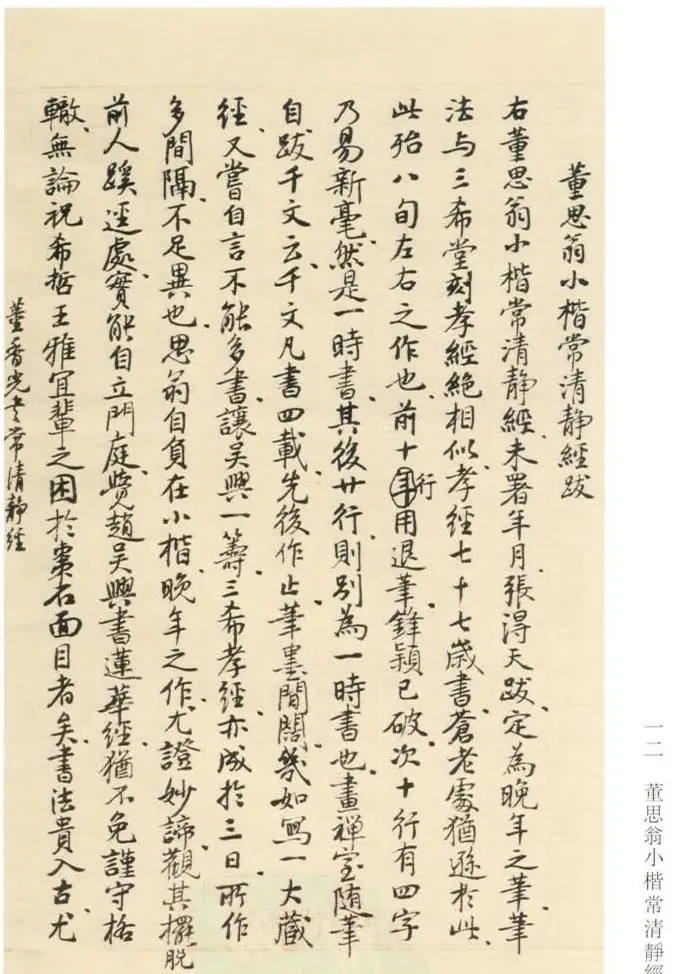 董思翁小楷常清靜經跋
右董思翁小楷常清靜經未署年月張得天跋定為晚年之筆筆
法与三希堂刻孝經絕相似孝經七十七歲書蒼老處猶遜於此
此殆八旬左右之作也前十年行用退筆鋒穎已破次十行有四字
乃易新毫然是一時書其後廿行則別為一時書也畫禪室隨筆
自跋千文云千文凡書四載先後作止筆墨間闊幾如寫一大藏
經又嘗自言不能多書讓吳興一籌三希孝經亦成於三日所作
多間隔不足異也思翁自負在小楷晚年之作尤證妙諦觀其擺脫
前人蹊逕處實能自立門庭覺趙吳興書蓮華經猶不免謹守格
轍無論祝希哲王雅宜輩之困於棗石面目者矣書法貴入古尤
董香光書常清靜經
一二 董思翁小楷常清靜經